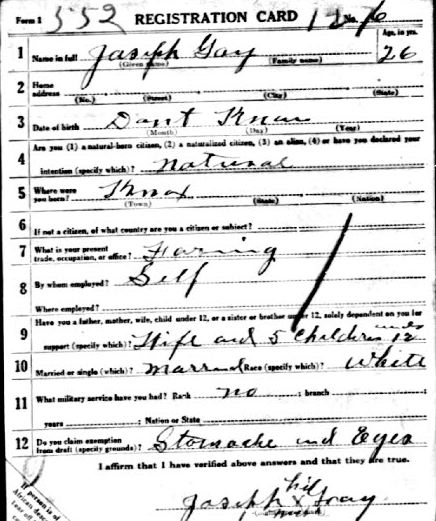 Form 1 552 REGISTRATION CARD 12 No. 76
1 Name in full Jaseph Gay Age, in yrs. 26
(Given name) (Family name)
2 Home address
(No.) (Street) (City) (State)
3 Date of birth Dant Know
(Month) (Day) (Year)
Are you (1) a natural-born citizen, (2) a naturalized citizen, (3) an alien, (4) or have you declared your
4 intention (specify which)? Natural
5 Where were you born? Knox
(Town) (State) (Nation)
6 If not a citizen, of what country are you a citizen or subject?
7 What is your present trade, occupation, or office? Faring
8 By whom employed? Self
Where employed?
Have you a father, mother, wife, child under 12, or a sister or brother under 12, solely dependent on you for
9 support (specify which)? Wife and 5 Children under 12
10 Married or single (which)? Married Race (specify which)? White
11 What military service have you had? Rank no ; branch
years ; Nation or State
12 Do you claim exemption from draft (specify grounds)? Stomache and Eyes
I affirm that I have verified above answers and that they are true.
his
Joseph x Gay
mark
If person is of
African